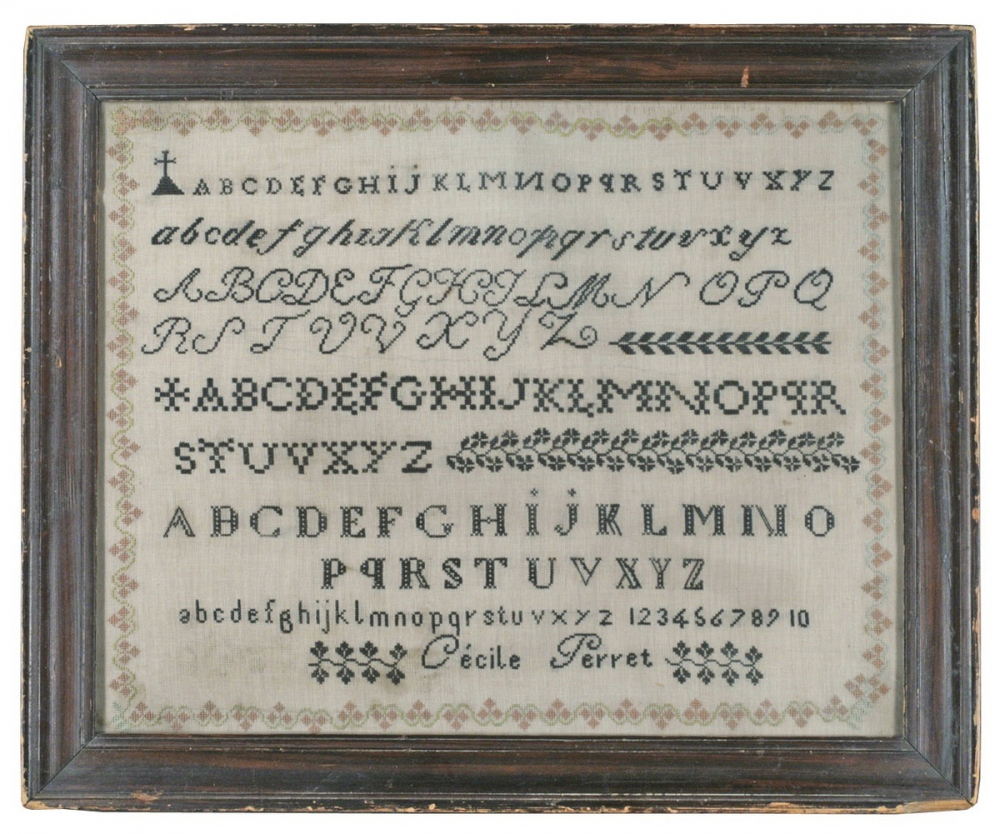 A B C D E F G H I J K L M N O P q R S T U V X Y Z
a b c d e f g h i j K l m n o p q r s t u v x y z
A B C D E F G H I J L M N O P Q
R S T U V X Y Z
A B C D E F G H I J K L M N O P q R
S T U V X Y Z
A B C D E F G H I J K L M N O
P q R S T U V X Y Z
a b c d e f g h i j k l m n o p q r s t u v x y z 1 2 3 4 5 6 7 8 9 10
Cécile Perret